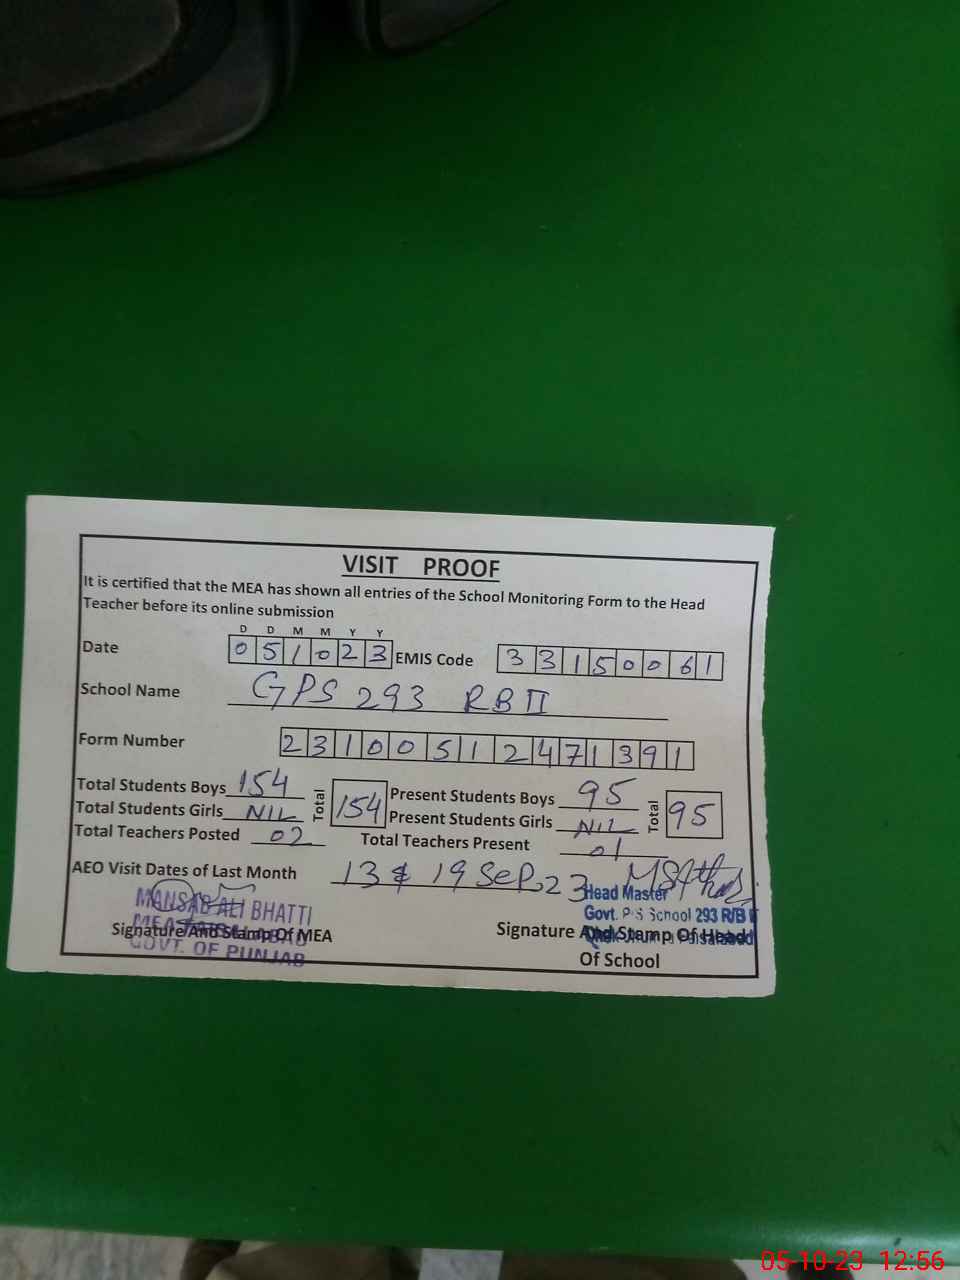 VISIT PROOF
It is certified that the MEA has shown all entries of the School Monitoring Form to the Head
Teacher before its online submission
D D M M Y Y
Date 051023 EMIS Code 33150061
School Name GPS 293 RB II
Form Number 23100512471391
Total Students Boys 154 Total 154 Present Students Boys 95 Total 95
Total Students Girls NIL Present Students Girls NIL
Total Teachers Posted 02 Total Teachers Present 01
AEO Visit Dates of Last Month 13 & 19 Sep. 23
MANSAB ALI BHATTI
MEA FAISALABAD
GOVT. OF PUNJAB
Signature And Stamp Of MEA
Head Master
Govt. P/S School 293 R/B II
Signature And Stamp Of Head
Of School
05-10-23 12:56